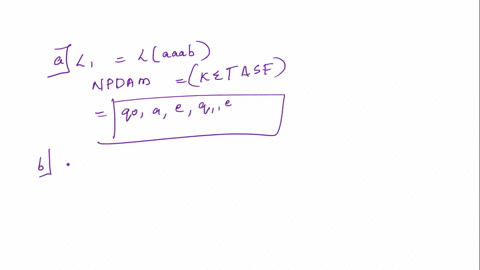 a] L1 = L(aaab)
NPDAM = (K Σ T Δ S F)
= q0, a, e, q1, e
b] .